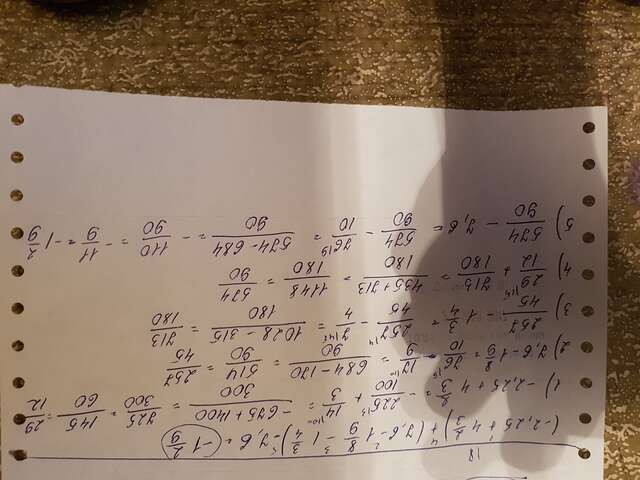 18
(-2,25 + 4 2/3) + (7,6 - 1 8/9 - 1 3/4) - 7,6 = -1 2/9
1) -2,25 + 4 2/3 = -225/100 + 14/3 = (-675+1400)/300 = 725/300 = 145/60 = 29/12
2) 7,6 - 1 8/9 = 76/10 - 17/9 = (684-170)/90 = 514/90 = 257/45
3) 257/45 - 1 3/4 = 257/45 - 7/4 = (1028-315)/180 = 713/180
4) 29/12 + 713/180 = (435+713)/180 = 1148/180 = 574/90
5) 574/90 - 7,6 = 574/90 - 76/10 = (574-684)/90 = -110/90 = -11/9 = -1 2/9